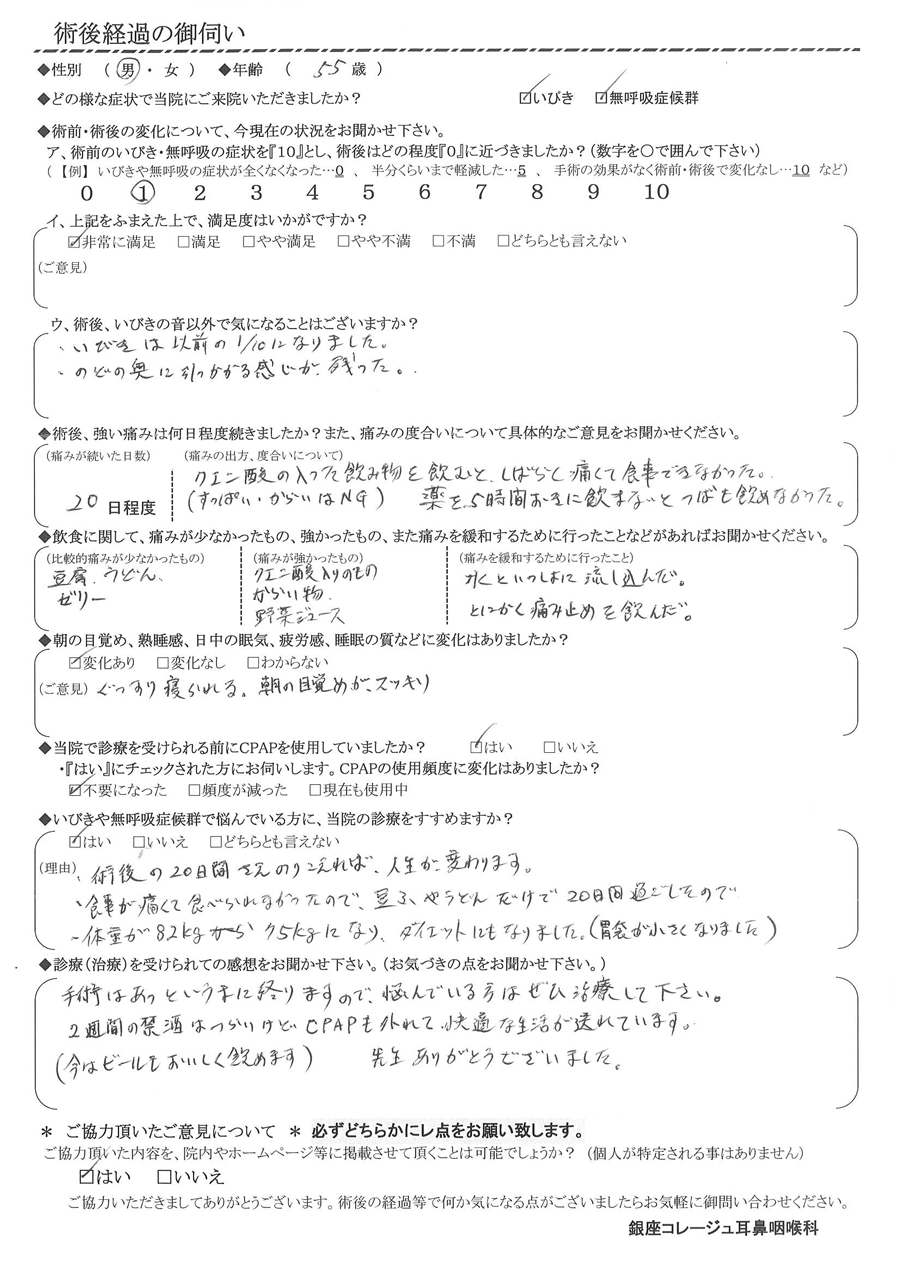 術後経過の御伺い
◆性別 （ 男 ・ 女 ） ◆年齢 （ 55 歳 ）
◆どの様な症状で当院にご来院いただきましたか？ ☑いびき ☑無呼吸症候群
◆術前・術後の変化について、今現在の状況をお聞かせ下さい。
ア、術前のいびき・無呼吸の症状を『10』とし、術後はどの程度『0』に近づきましたか？（数字を○で囲んで下さい）
（【例】 いびきや無呼吸の症状が全くなくなった…0 、 半分くらいまで軽減した…5 、 手術の効果がなく術前・術後で変化なし…10 など）
0 ① 2 3 4 5 6 7 8 9 10
イ、上記をふまえた上で、満足度はいかがですか？
☑非常に満足 □満足 □やや満足 □やや不満 □不満 □どちらとも言えない
（ご意見）
ウ、術後、いびきの音以外で気になることはございますか？
・いびきは以前の1/10になりました。
・のどの奥に引っかかる感じが残った。
◆術後、強い痛みは何日程度続きましたか？また、痛みの度合いについて具体的なご意見をお聞かせください。
（痛みが続いた日数） （痛みの出方、度合いについて）
クエン酸の入った飲み物を飲むと、しばらく痛くて食事できなかった。
20 日程度 （すっぱい・からいはNG） 薬を5時間おきに飲まないとつばも飲めなかった。
◆飲食に関して、痛みが少なかったもの、強かったもの、また痛みを緩和するために行ったことなどがあればお聞かせください。
（比較的痛みが少なかったもの） （痛みが強かったもの） （痛みを緩和するために行ったこと）
豆腐、うどん、 クエン酸入りのもの 水といっしょに流し込んだ。
ゼリー からい物、
野菜ジュース とにかく痛み止めを飲んだ。
◆朝の目覚め、熟睡感、日中の眠気、疲労感、睡眠の質などに変化はありましたか？
☑変化あり □変化なし □わからない
（ご意見） ぐっすり寝られる。朝の目覚めが、スッキリ
◆当院で診療を受けられる前にCPAPを使用していましたか？ ☑はい □いいえ
・『はい』にチェックされた方にお伺いします。CPAPの使用頻度に変化はありましたか？
☑不要になった □頻度が減った □現在も使用中
◆いびきや無呼吸症候群で悩んでいる方に、当院の診療をすすめますか？
☑はい □いいえ □どちらとも言えない
（理由） ・術後の20日間さえのりこえれば、人生が変わります。
・食事が痛くて食べられなかったので、豆ふやうどんだけで20日間過ごしたので
・体重が82kgから75kgになり、ダイエットにもなりました。（胃袋が小さくなりました）
◆診療（治療）を受けられての感想をお聞かせ下さい。（お気づきの点をお聞かせ下さい。）
手術はあっというまに終りますので、悩んでいる方はぜひ治療して下さい。
2週間の禁酒はつらいけどCPAPも外れて、快適な生活が送れています。
（今はビールもおいしく飲めます） 先生ありがとうございました。
＊ ご協力頂いたご意見について ＊ 必ずどちらかにレ点をお願い致します。
ご協力頂いた内容を、院内やホームページ等に掲載させて頂くことは可能でしょうか？ （個人が特定される事はありません）
☑はい □いいえ
ご協力いただきましてありがとうございます。術後の経過等で何か気になる点がございましたらお気軽に御問い合わせください。
銀座コレージュ耳鼻咽喉科